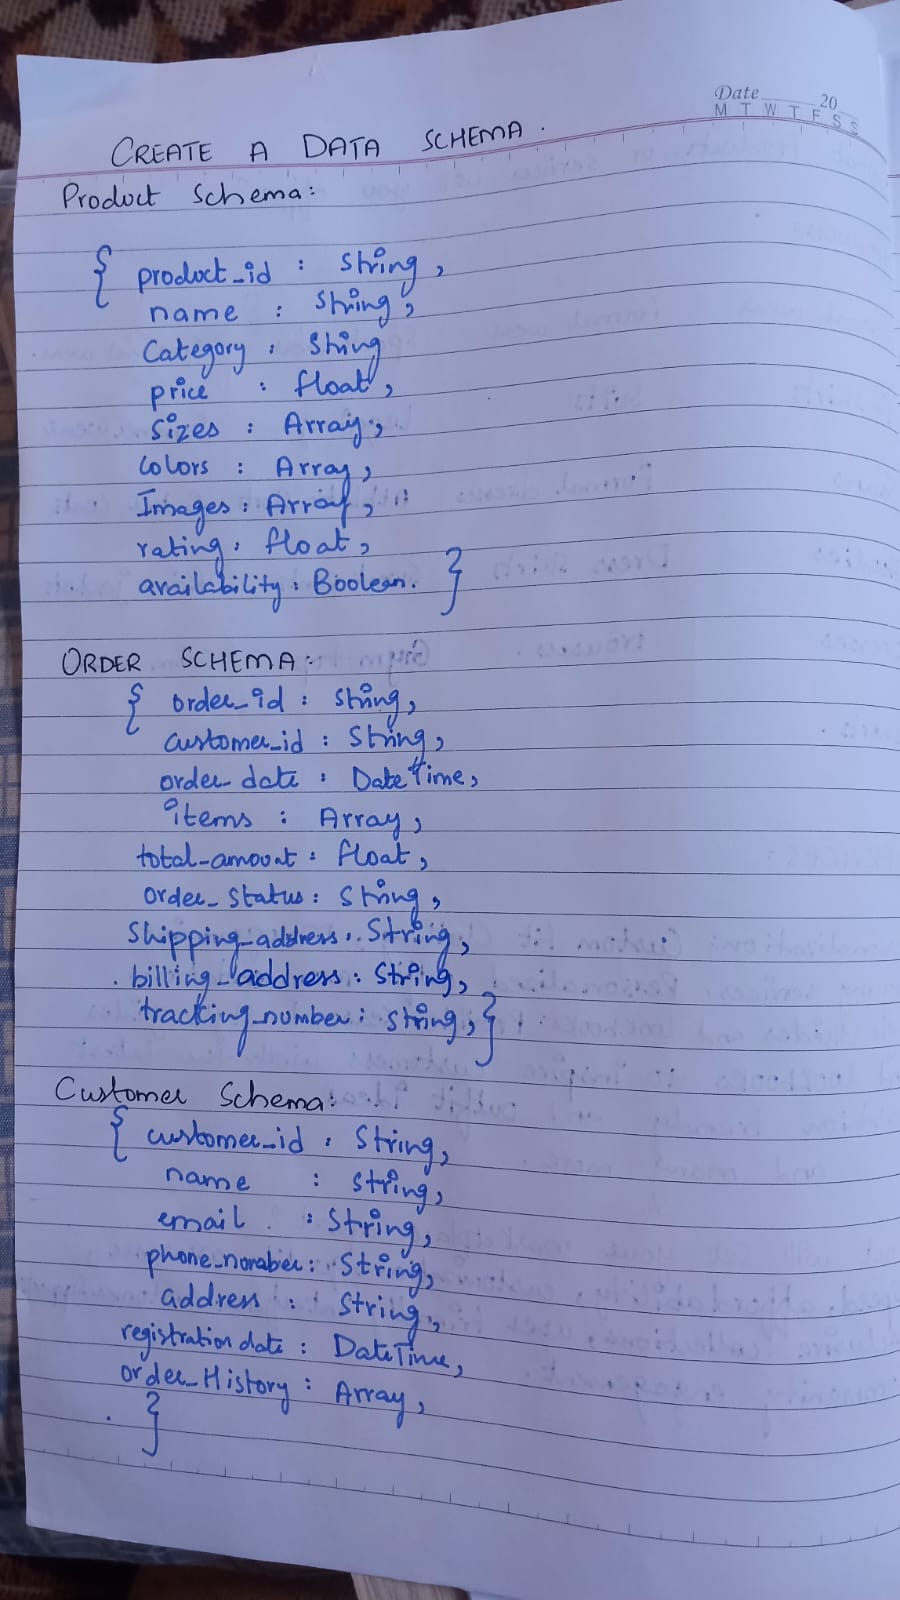 Date 20
M T W T F S S
CREATE A DATA SCHEMA.
Product Schema:
{ product_id : String,
name : String,
Category : String
price : float,
Sizes : Array,
Colors : Array,
Images : Array,
rating : float,
availability : Boolean. }
ORDER SCHEMA:
{ order_id : String,
customer_id : String,
order_date : DateTime,
items : Array,
total_amount : float,
order_status : String,
Shipping_address : String,
billing_address : String,
tracking_number : String, }
Customer Schema:
{ customer_id : String,
name : String,
email : String,
phone_number : String,
address : String,
registration date : DateTime,
order_History : Array,
}